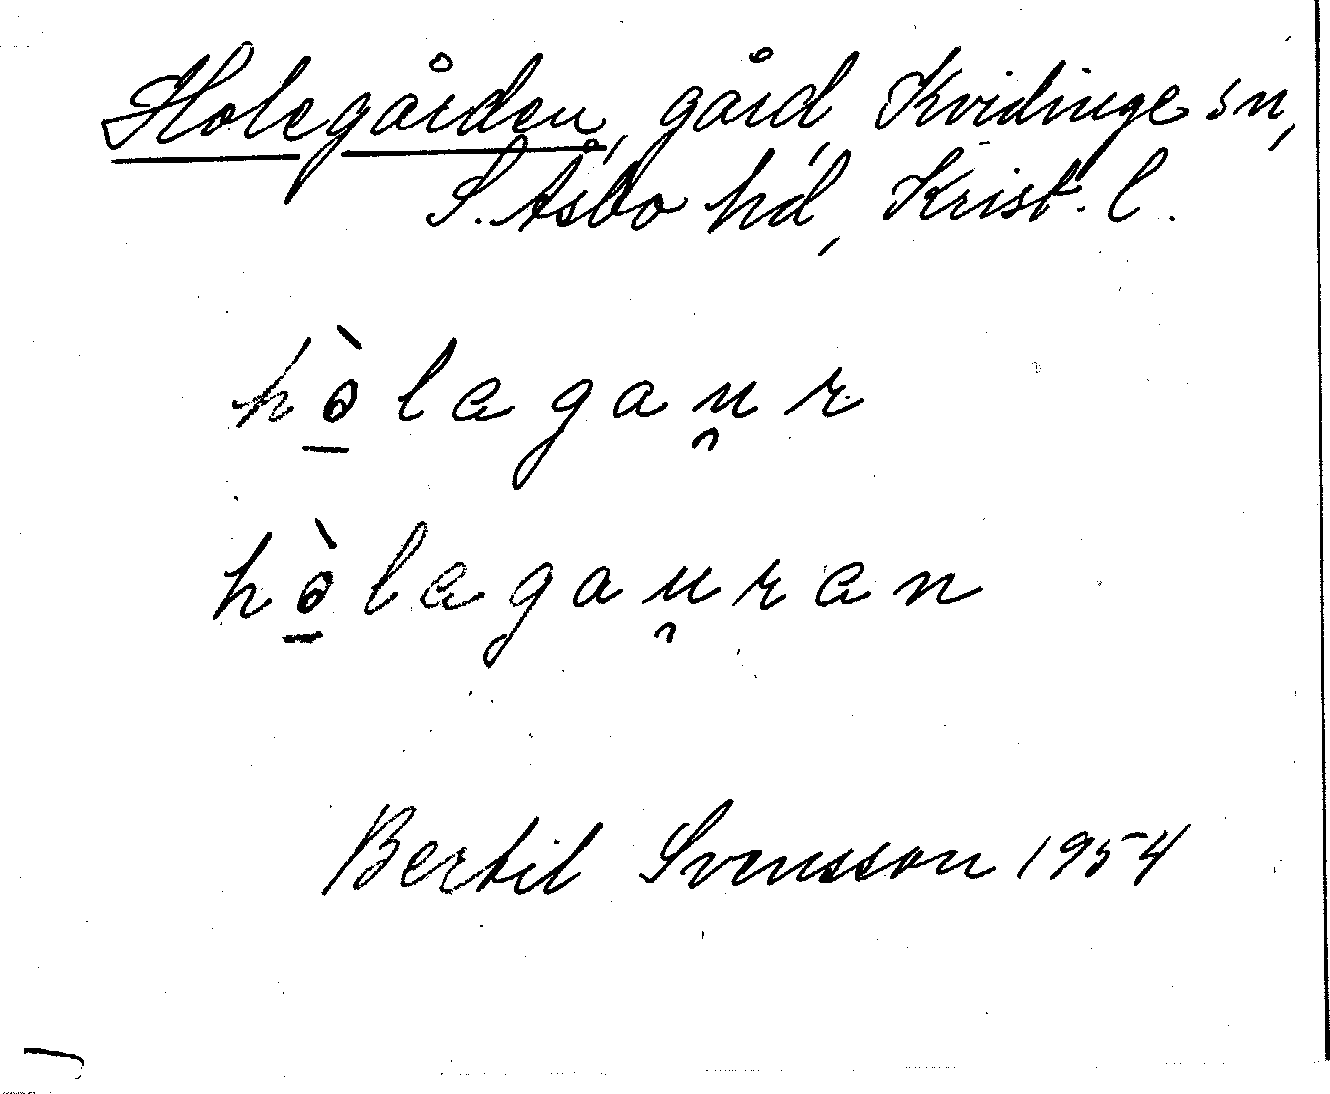 Holegården, gård, Kvidinge sn,
S. Åsbo hd, Krist. l.
hò̱lagau̯r
hò̱lagau̯ran
Bertil Svensson 1954